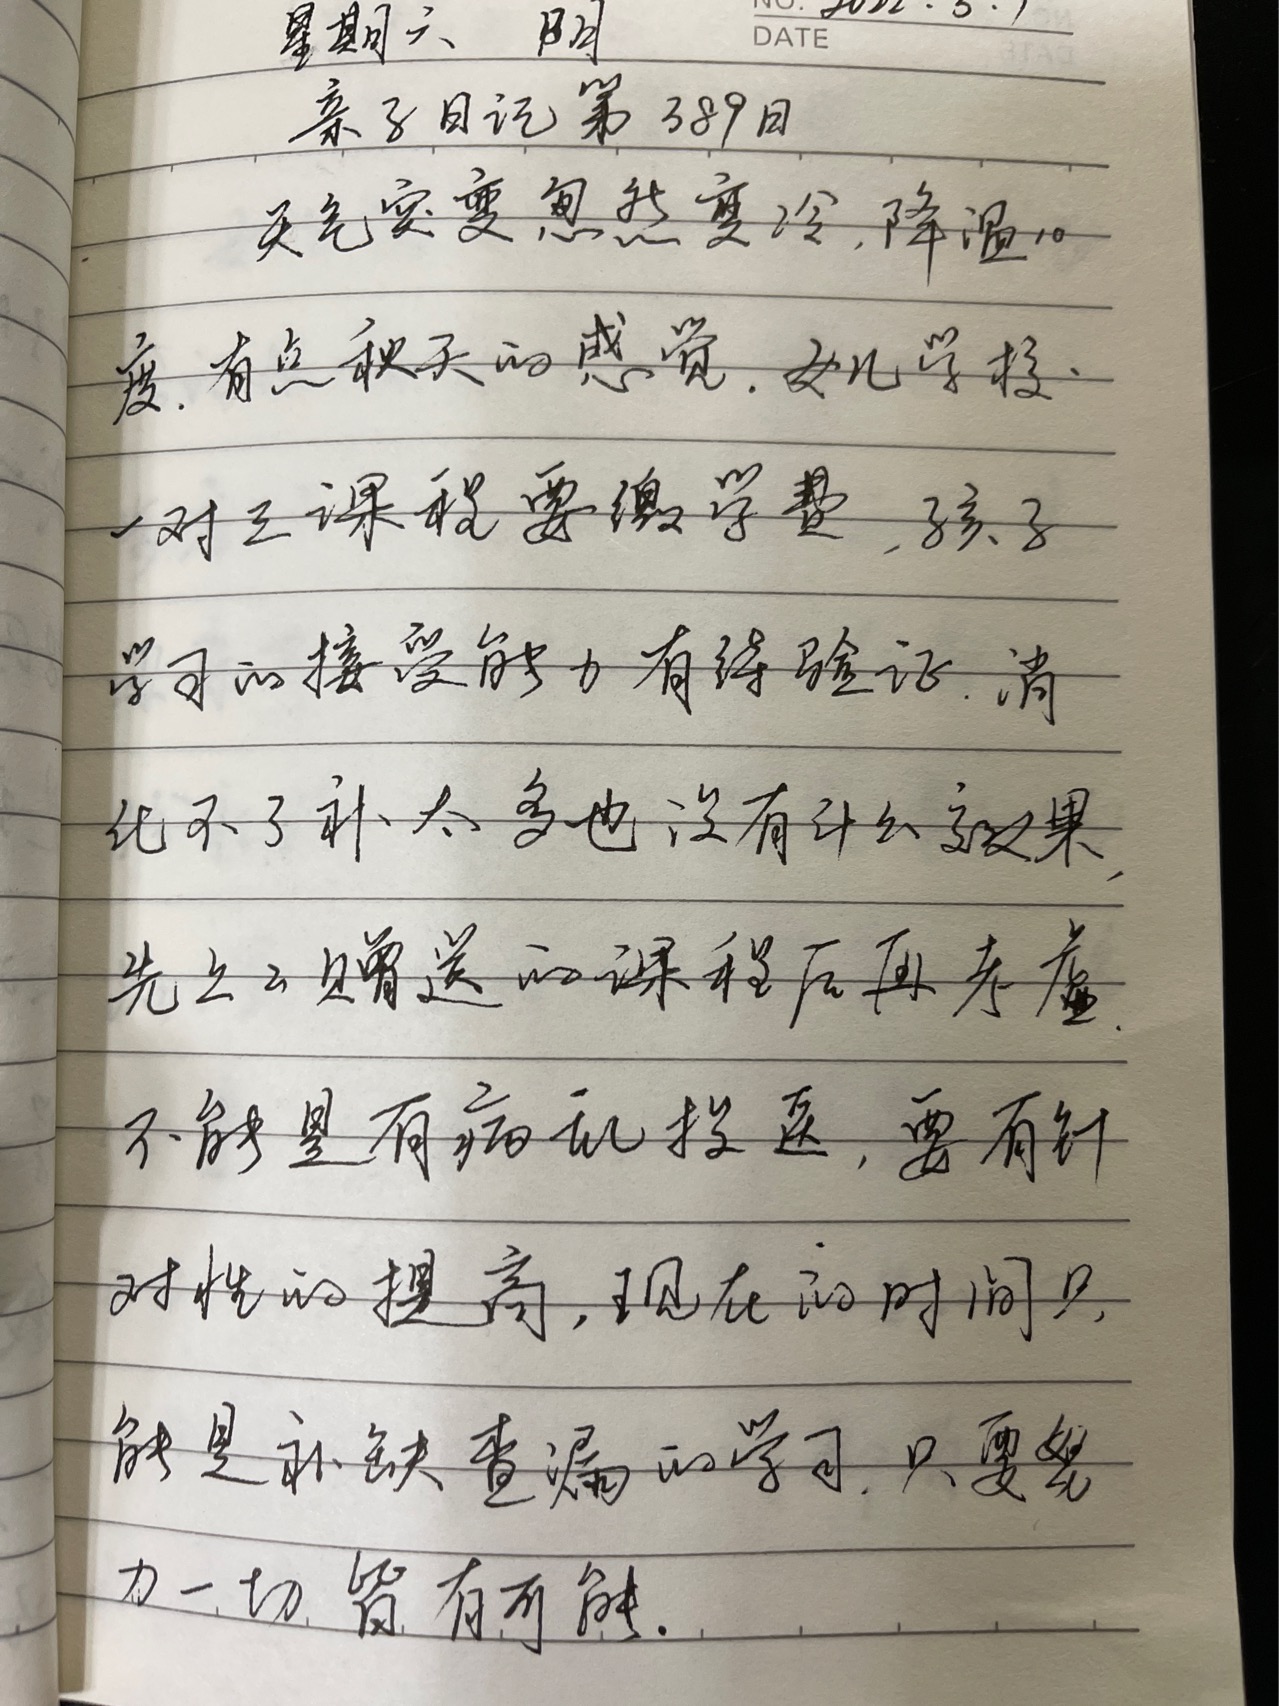 NO. 2022.5.7
星期六 阴
DATE
亲子日记第389日
天气突变忽然变冷,降温10
度.有点秋天的感觉.女儿学校.
一对三课程要缴学费,孩子
学习的接受能力有待验证.消
化不了补太多也没有什么效果,
先上上赠送的课程后再考虑.
不能是有病乱投医,要有针
对性的提高,现在的时间只
能是补缺查漏的学习.只要努
力一切皆有可能.